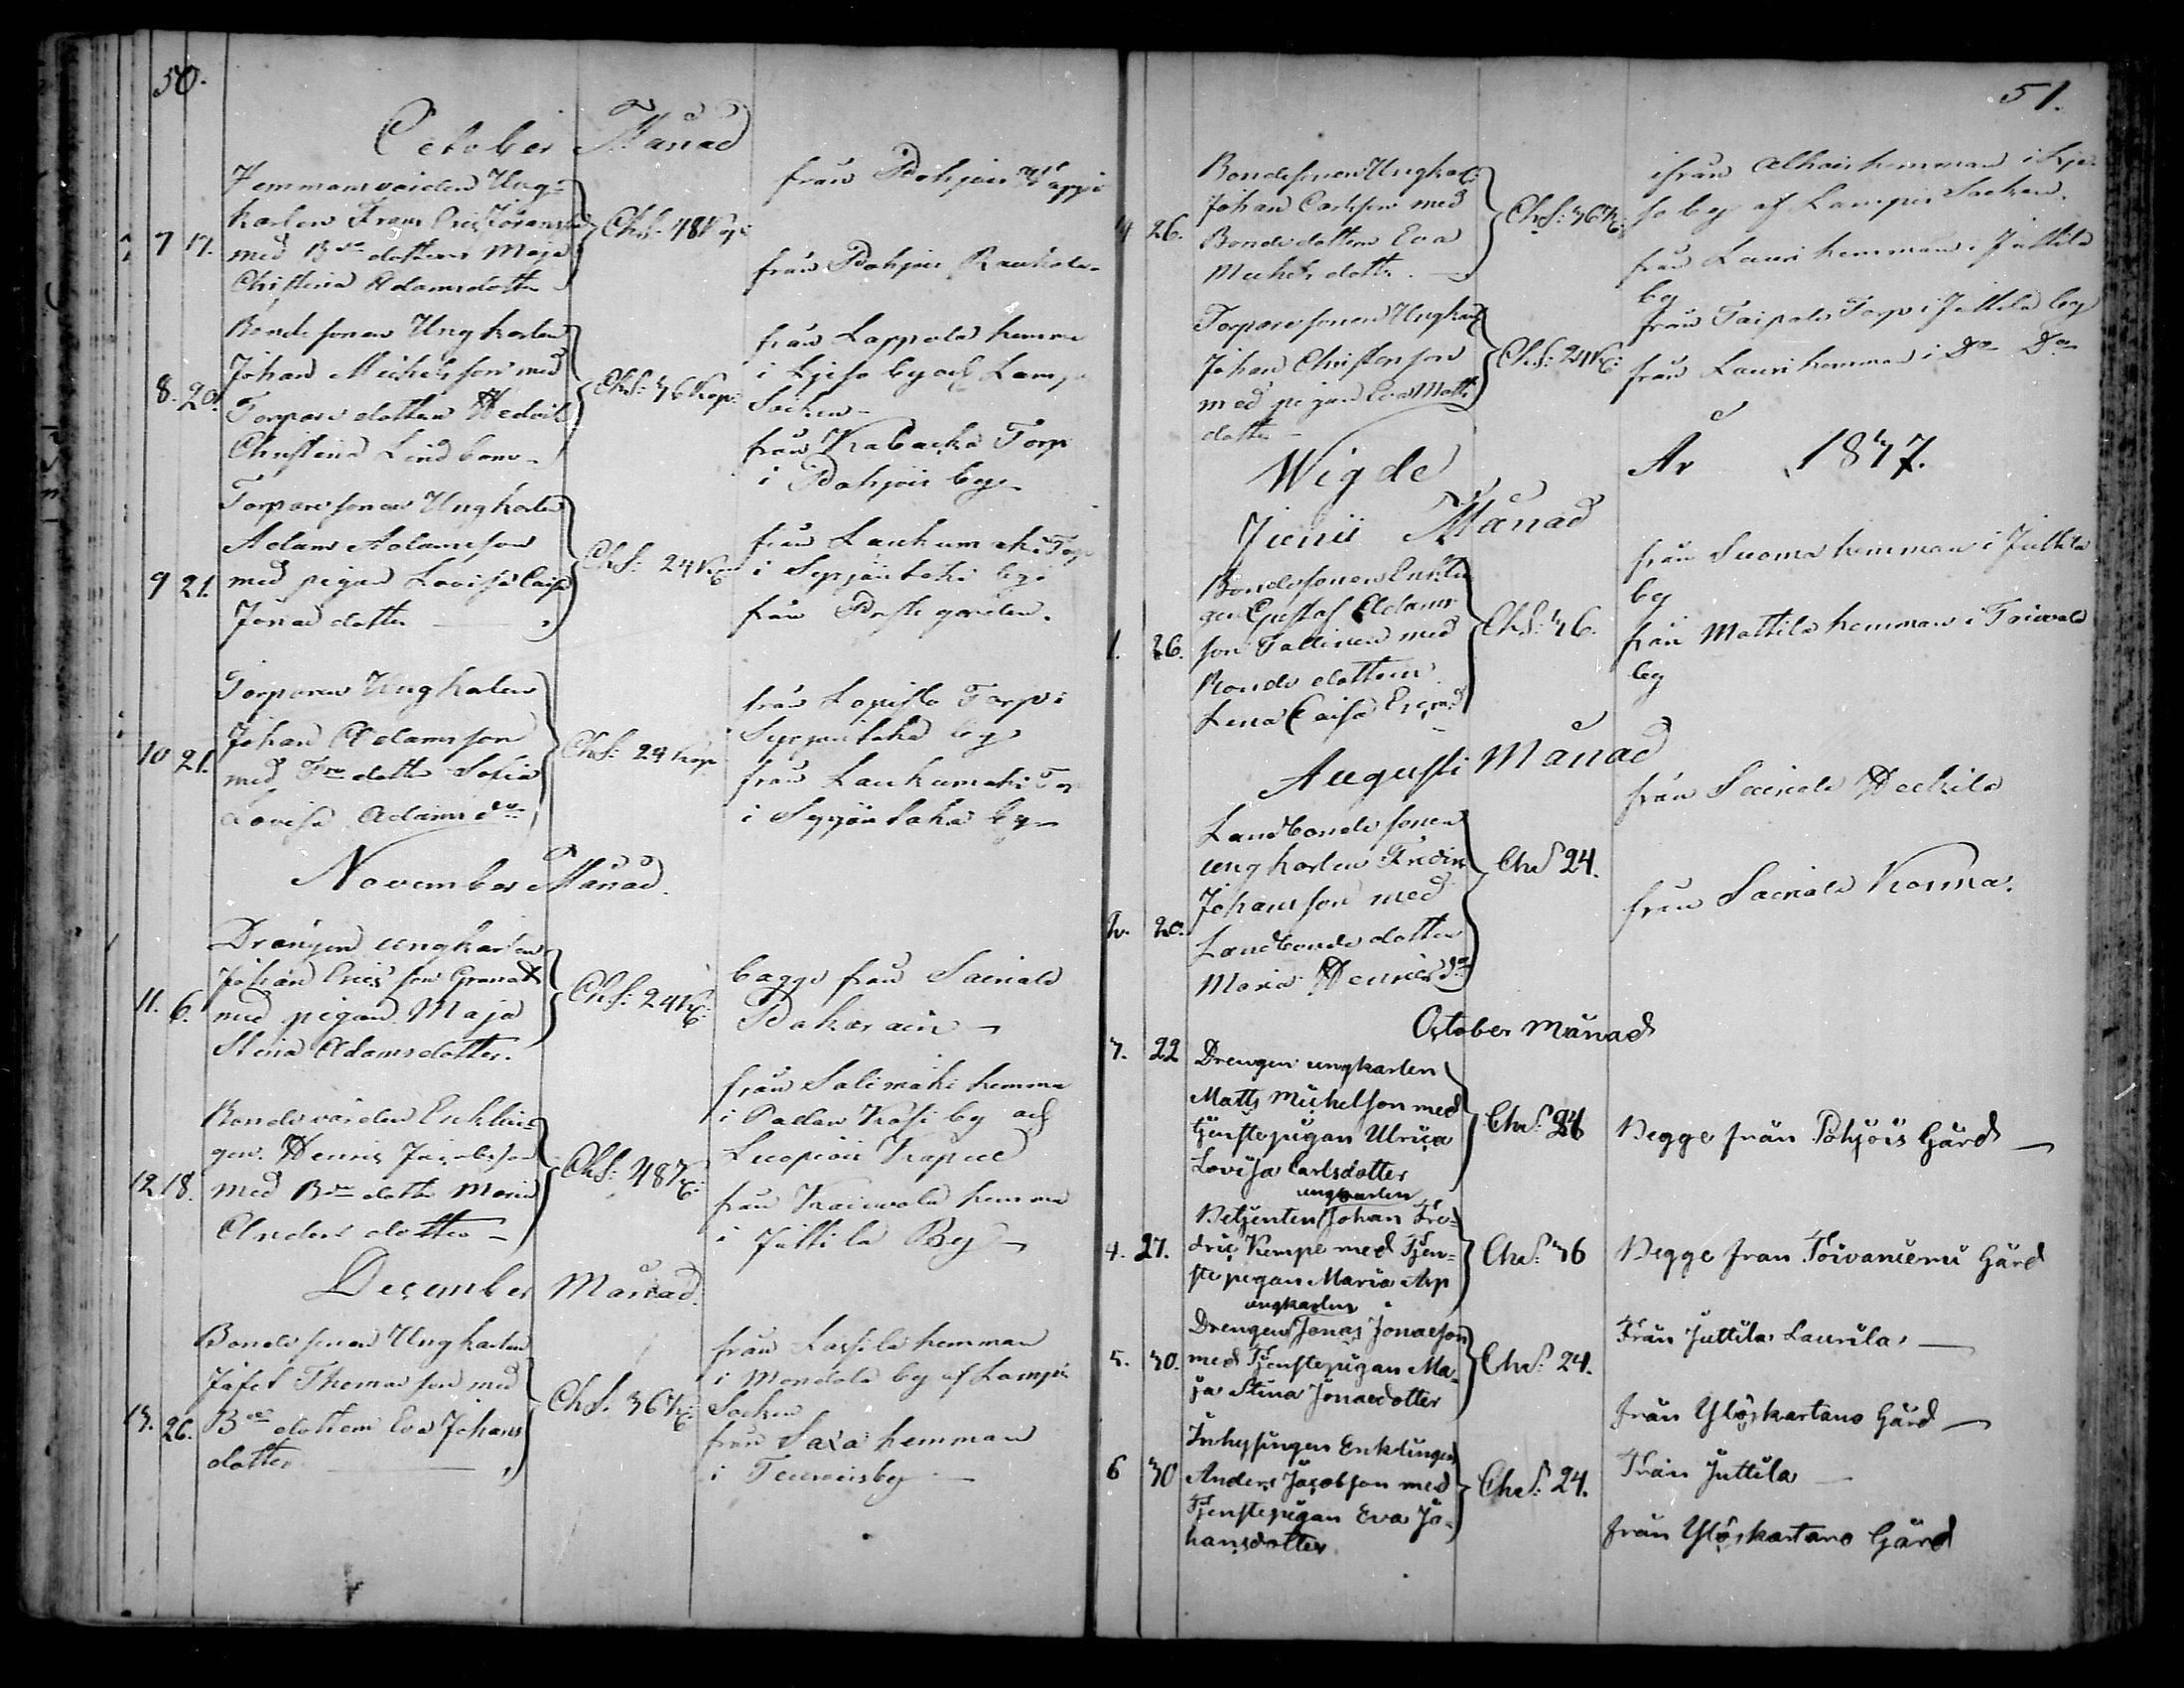 50.
October Månad
7 17. Hemmansvärden Ung=
karlen Frans Eric Göransson
med B:de dottern Maja
Christina Adamsdotter
Chs: 48 Kop:
från Pohjois Pappi
från Pohjois Rankola
8. 20. Bondesonen Ungkarlen
Johan Michelsson med
Torpare dottern Hedvik
Christina Lindbom
Chs: 36 Kop:
från Lappola hemman
i Ljeso by och
Socken
från Torp
i Pohjois by
9 21. Torparesonen Ungkarlen
Adam Adamsson
med pigan Lovisa Caisa
Jonæ dotter
Chs: 24
från Laukumäki Torp
i Syrjäntaka by
från Prästegården.
10 21. Torparen Ungkarlen
Johan Adamsson
med Tre dotter Sofia
Lovisa Adamsdr
Chs: 24 Kop
från Lopisto Torp i
Syrjäntaka by
från Laukumäki Torp
i Syrjäntaka by
November Månad.
11. 6. Drängen ungkarlen
Johan Ericsson Granat
med pigan Maja
Stina Adamsdotter.
Chs: 24 K:
bägge från Sairiala
Pakarain
12 18. Bondevärden Enklin=
gen Henric Jacobsson
med Bde dotter Maria
Anders dotter
Chs: 48 K:
från Salimäki hemman
i Padan Koski by och
Luopiois Kapell
från hemman
i Juttila By
December Månad.
13. 26. Bondesonen Ungkarlen
Jafet Thomasson med
Bde dottern Eva Johans
dotter
Chs. 36 K:
från Lassila hemman
i Mondola by af Lampis
Socken
från Saxa hemman
i Teuroisby
51.
14 26. Bondesonen Ungkarl:
Johan Carlsson med
Bondedottern Eva
Michelsdotter.
Chs: 36 K:
ifrån hemman i Lje=
so by af Lampis Socken.
från Lauri hemman i Juttila
by
Torparesonen Ungkarl
Johan Christersson
med pigan Eva Matts
dotter
Chs: 24 K:
från Taipale Torp i Juttila by
från Lauri hemman i Do Do
Wigde År 1847.
Junii Månad
1. 26. Bondesonen Enklin
gen Gustaf Adams
son Tallinen med
Bonde dottern
Lena Caisa Ericsd
Chs: 36.
från Suoma hemman i Juttila
by
från Mattila hemman i Toivola
by
Augusti Månad
2. 20. Landbonde sonen
ungkarlen Fredric
Johansson med
Landbonde dottern
Maria Henricsdr
Chs 24.
från Sairiala Heikkilä
från Sairiala Korma.
October Månad
3. 22 Drengen ungkarlen
Matts Michelson med
tjenstepigan Ulrica
Lovisa Carlsdotter
Chs. 24
Begge från Pohjois Gård
ungkarlen
4. 27. Betjenten Johan Fre=
dric Kempe med Tjen=
stepigan Maria Arp
Chs. 36
Begge från Toivaniemi Gård
ungkarlen
5. 30. Drengen Jonas Jonæson
med Tjenstepigan Ma=
ja Stina Jonædotter
Chs. 24.
Från Juttila Laurila
från Ylöskartano Gård
6 30 Inhysingen Enklingen
Anders Jacobson med
Tjenstepigan Eva Jo=
hansdotter
Chs: 24.
Från Juttila
från Ylöskartano Gård